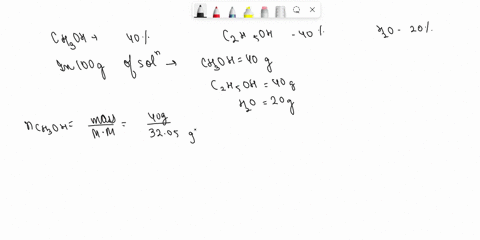 CH3OH → 40% C2H5OH - 40% H2O - 20%
In 100g of solⁿ → CH3OH = 40 g
C2H5OH = 40g
H2O = 20g
nCH3OH = mass/M.M = 40g/32.05 g